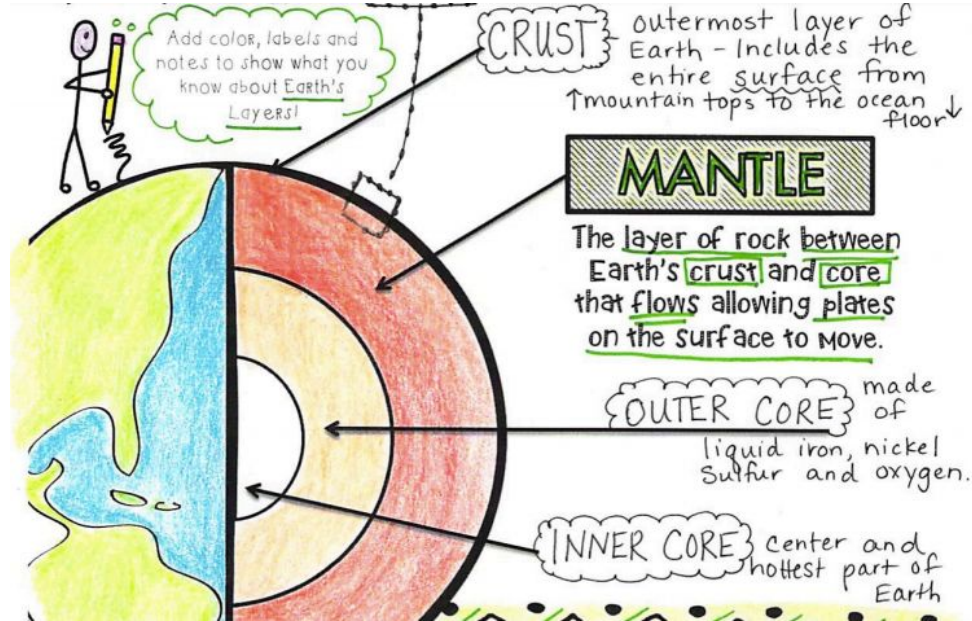 Add color, labels and
notes to show what you
know about Earth's
Layers!
CRUST
outermost layer of
Earth - Includes the
entire surface from
↑mountain tops to the ocean
floor↓
MANTLE
The layer of rock between
Earth's crust and core
that flows allowing plates
on the surface to move.
OUTER CORE
made
of
liquid iron, nickel
Sulfur and oxygen.
INNER CORE
center and
hottest part of
Earth